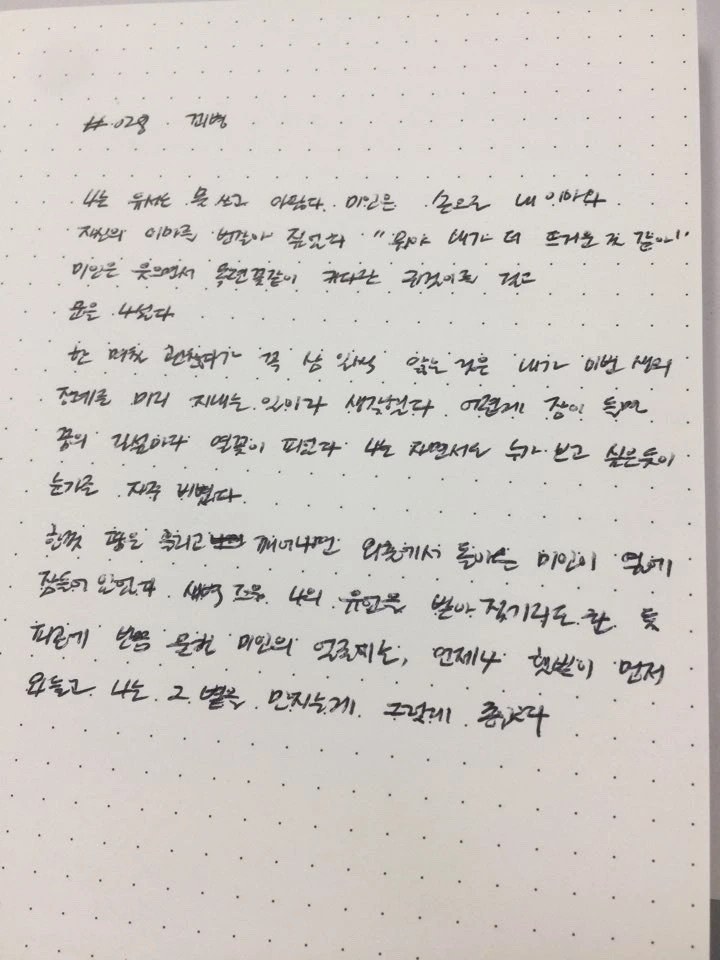 #.028 꾀병
나는 유서도 못 쓰고 아팠다. 미인은 손으로 내 이마와
자신의 이마를 번갈아 짚었다 "뭐야 내가 더 뜨거운 것 같아"
미인은 웃으면서 목련꽃같이 커다란 귀걸이를 걸고
문을 나섰다
한 며칠 괜찮다가 꼭 삼 일씩 앓는 것은 내가 이번 생의
장례를 미리 지내는 일이라 생각했다 어렵게 잠이 들면
꿈의 길섶마다 열꽃이 피었다 나는 자면서도 누가 보고 싶은듯이
눈가를 자주 비볐다.
힘껏 땀을 흘리고 깨어나면 외출에서 돌아온 미인이 옆에
잠들어 있었다 새벽 즈음 나의 유언을 받아 적기라도 한 듯
피곤에 반쯤 묻힌 미인의 얼굴에는, 언제나 햇빛이 먼저
와 들고 나는 그 볕을 만지는게 그렇게 좋았다